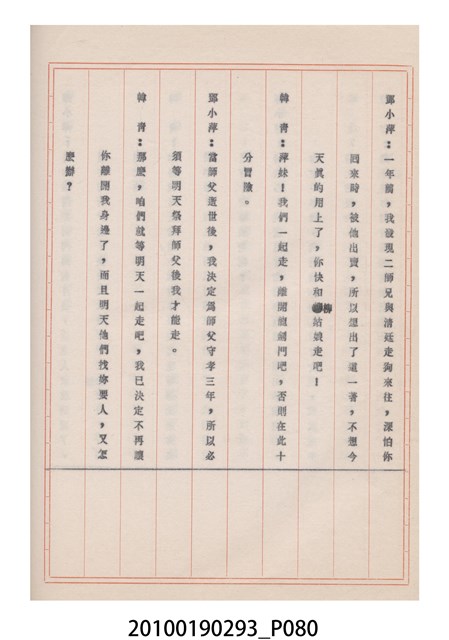 鄧小萍：一年前，我發現二師兄與清廷走狗來往，深怕你
回來時，被他出賣，所以想出了這一著，不想今
天真的用上了，你快和柳姑娘走吧！
韓　青：萍妹！我們一起走，離開龍劍門吧，否則在此十
分冒險。
鄧小萍：當師父逝世後，我決定爲師父守孝三年，所以必
須等明天祭拜師父後我才能走。
韓　青：那麼，咱們就等明天一起走吧，我已決定不再讓
你離開我身邊了，而且明天他們找妳要人，又怎
麼辦？
20100190293_P080